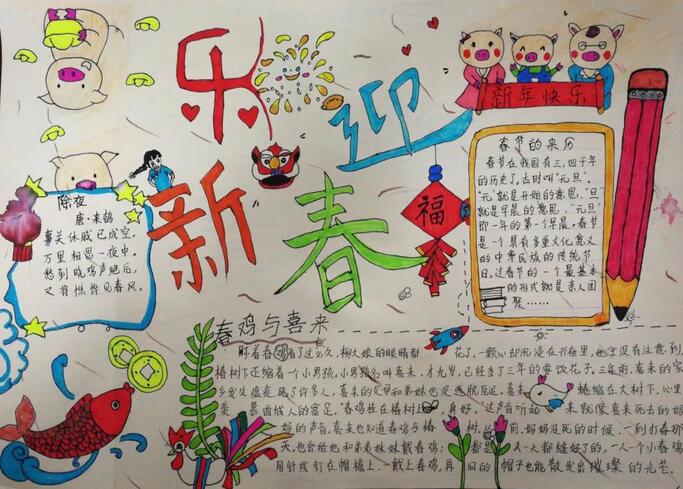 乐迎新春
新年快乐
福
除夜
唐·来鹄
事关休戚已成空，
万里相思一夜中。
愁到晓鸡声绝后，
又将憔悴见春风。
春节的来历
春节在我国有三、四千年
的历史了。古时叫“元旦”。
“元”就是开始的意思，“旦”
就是早晨的意思，“元旦”
即一年的第一个早晨。春节
是一个具有多重文化意义
的中华民族的传统节
日。过春节的一个最基本
的形式就是亲人团
聚……
春鸡与喜来
盯着春鸡看了这么久，柳大娘的眼睛都花了，一颗心却沉浸在兴奋里，她全没有注意到
椿树下还缩着一个小男孩。小男孩名叫喜来，才九岁，已经当了三年的要饭花子。三年前，喜来的家
乡发生瘟疫，死了许多人，喜来的父母和弟妹也没逃脱厄运。喜来蜷缩在大树下，心里
羡慕画棋人的富足。“春鸡挂在椿树上 真好。”这声音听起来就像喜来死去的妈
妈的声音，喜来也知道春鸡与椿树。以前，妈妈没死的时候，一到打春那
天，也会给他和弟弟妹妹戴春鸡； 都是 又一天都缝好了的，一人一个小春鸡
用针线钉在帽檐上。一戴上春鸡，再旧的帽子也能散发出璀璨的光芒。